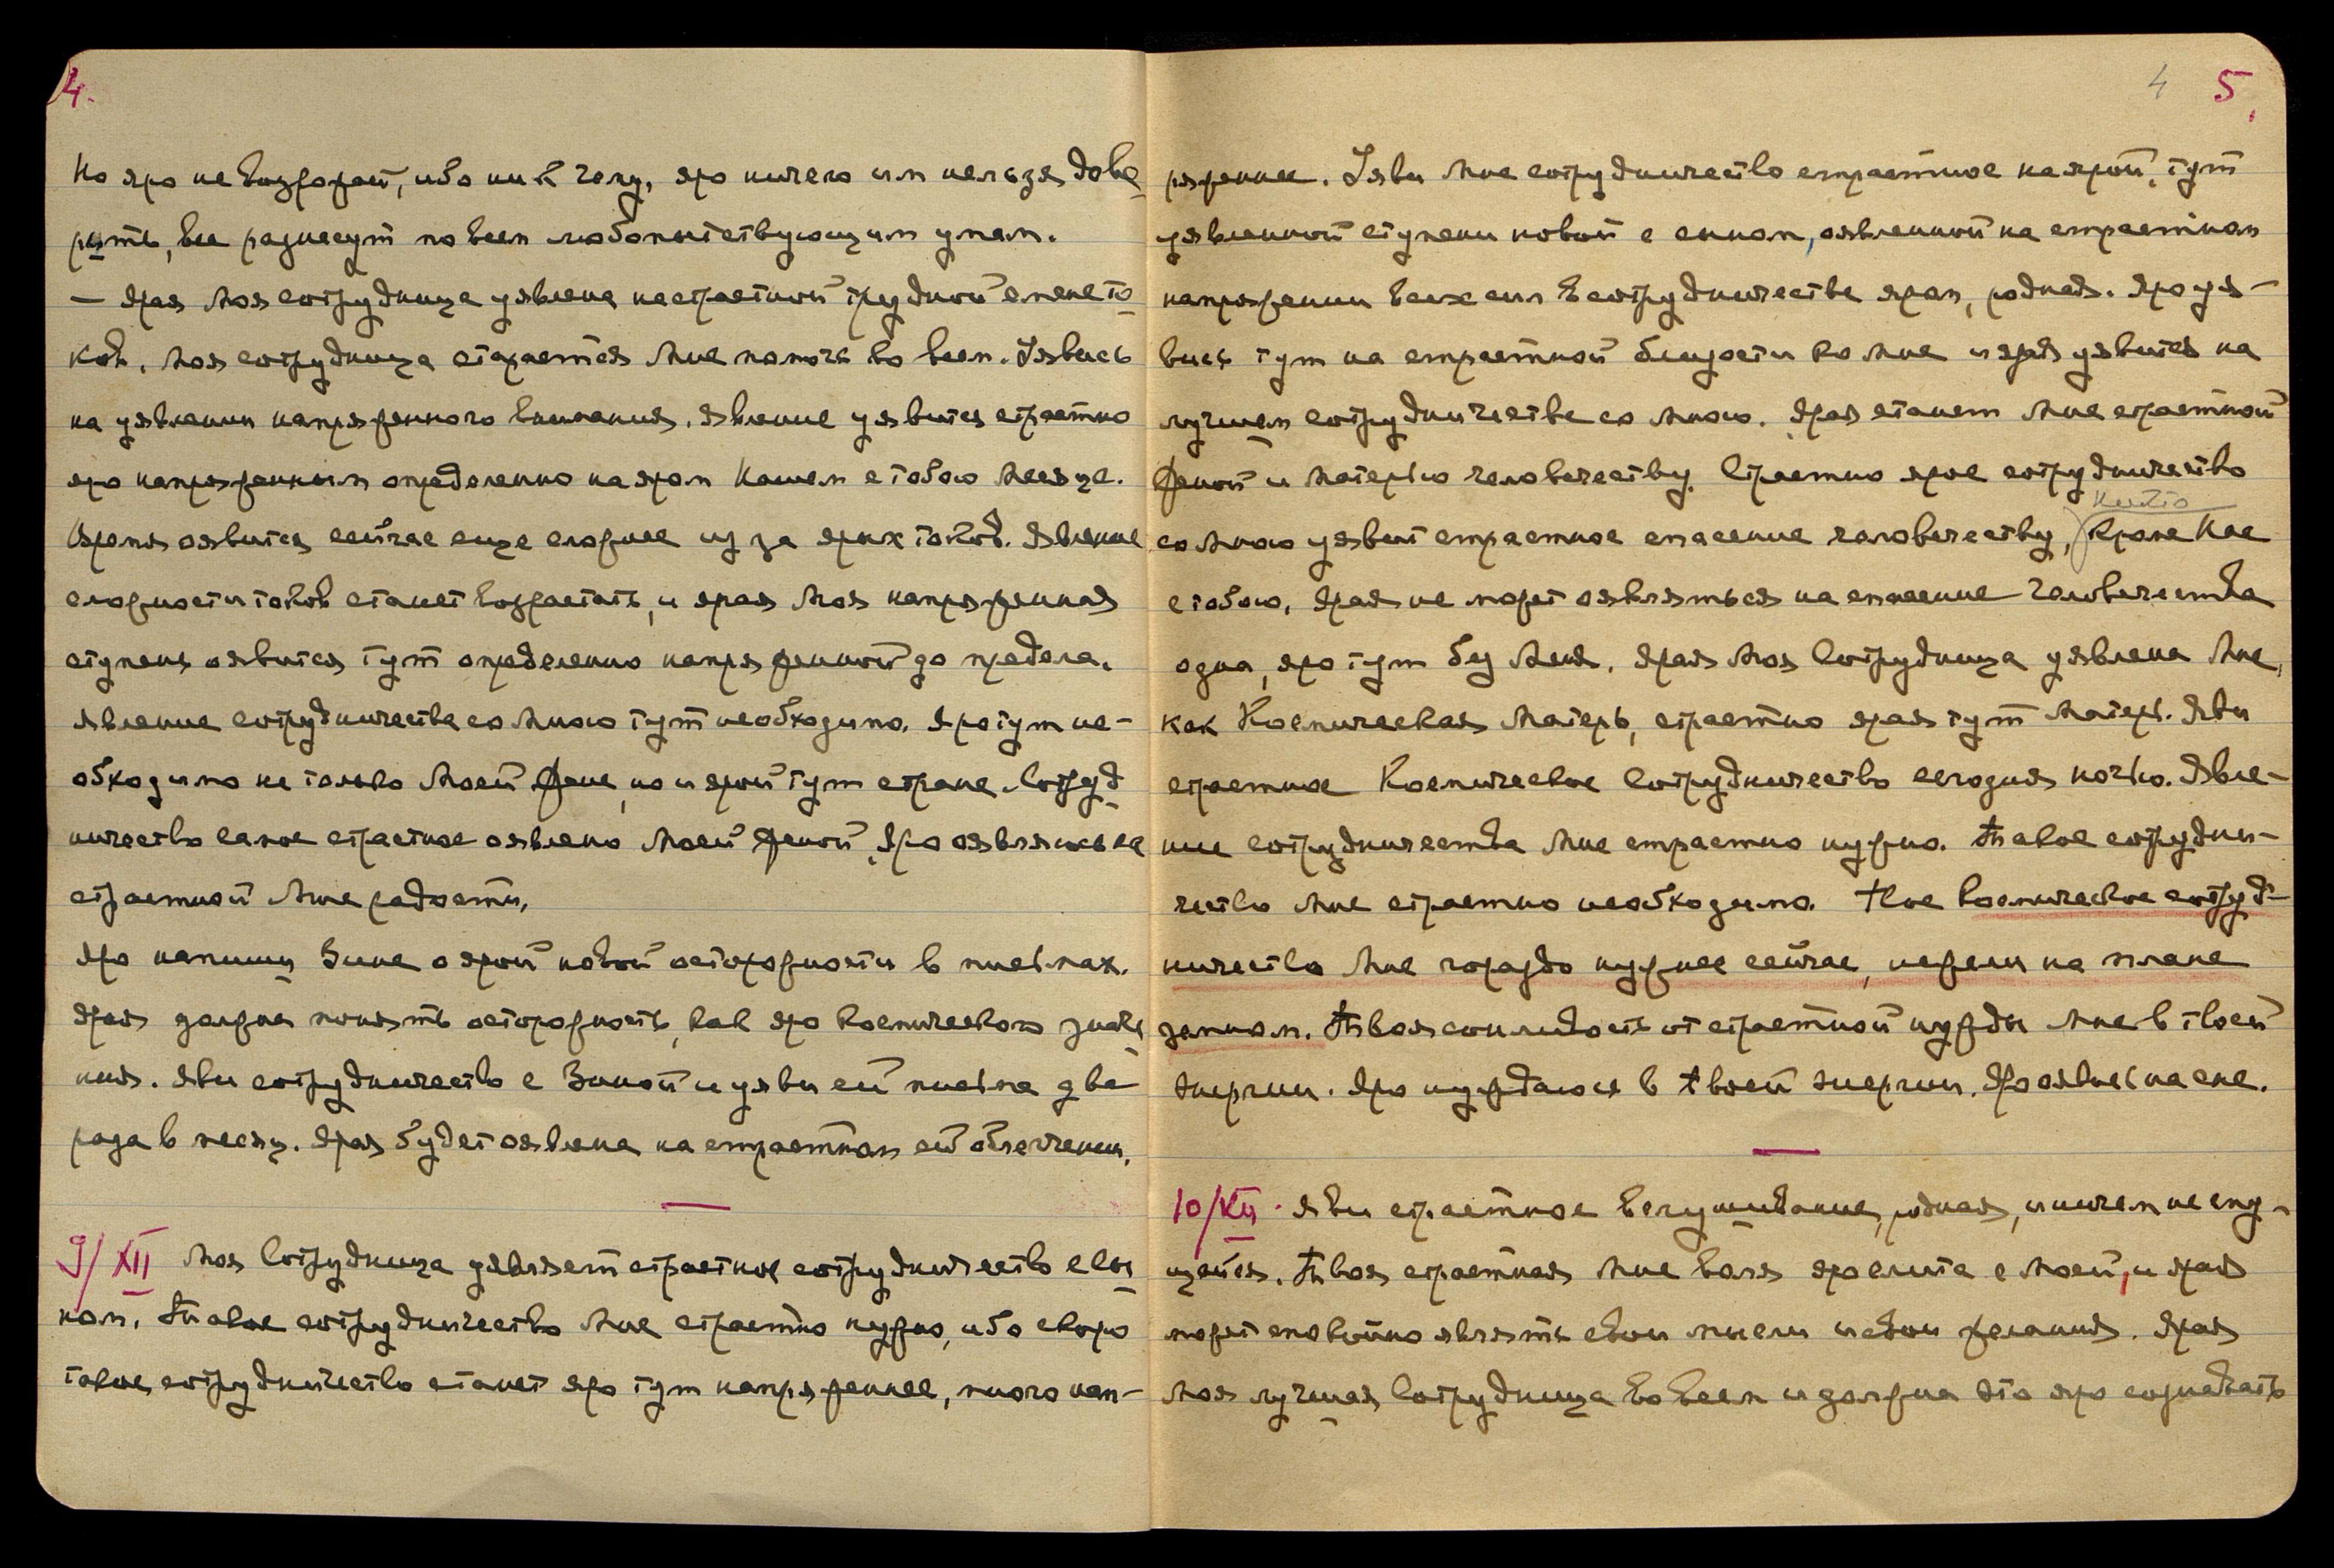 4.
Но яро не возражай, ибо ни к чему, яро ничего им нельзя дове
рить, все разнесут по всем любопытствующим умам.
— Ярая Моя сотрудница уявлена на страстной трудной смене то
ков. Моя сотрудница старается Мне помочь во всем. Уявись
на уявлении напряженного внимания. Явление уявится страстно
яро напряженным определенно на яром Нашем с тобою Месяце.
Время оявится сейчас еще сложнее из за ярых токов. Явление
сложности токов станет возрастать, и ярая Моя напряженная
ступень оявится тут определенно напряженной до предела.
Явление сотрудничества со Мною тут необходимо. Яро тут не-
обходимо не только Моей Жене, но и ярой тут стране. Сотруд
ничество самое страстное оявлено Моей Женой. Яро оявляюсь на
страстной Мне радости.
Яро напиши Зине о ярой новой осторожности в письмах.
Ярая должна понять осторожность, как яро космического значе
ния. Яви сотрудничество с Зиной и уяви ей письма два
раза в месяц. Ярая будет оявлена на страстном ей облегчении.
9/XII Моя Сотрудница уявляет страстное сотрудничество с Сы
ном. Такое сотрудничество Мне страстно нужно, ибо скоро
такое сотрудничество станет яро тут напряженнее, много нап-
4 5.
ряженнее. Уяви Мне сотрудничество страстное на ярой, тут
уявленной ступени новой с сыном, оявленной на страстном
напряжении всех сил в сотрудничестве яром, родная. Яро уя-
вись тут на страстной близости ко Мне и ярая уявится на
лучшем сотрудничестве со Мною. Ярая станет Мне страстной
Женой и Матерью человечеству. Страстно ярое сотрудничество
никто
со Мною уявит страстное спасение человечеству, кроме Нас
с тобою. Ярая не может оявляться на спасение человечества
одна, яро тут без Меня. Ярая Моя Сотрудница уявлена Мне,
как Космическая Матерь, страстно ярая тут Матерь. Яви
страстное Космическое Сотрудничество сегодня ночью. Явле-
ние сотрудничества Мне страстно нужно. Такое сотрудни-
чество Мне страстно необходимо. Твое космическое сотруд-
ничество Мне гораздо нужнее сейчас, нежели на плане
земном. Твоя сонливость от страстной нужды Мне в твоей
энергии. Яро нуждаюсь в твоей энергии. Яро оявись на сне.
10/XII. Яви страстное вслушивание, родная, и ничем не сму-
щайся. Твоя страстная Мне воля яро слита с Моей, и ярая
может спокойно являть свои мысли и свои желания. Ярая
Моя лучшая Сотрудница во всем и должна это яро сознавать